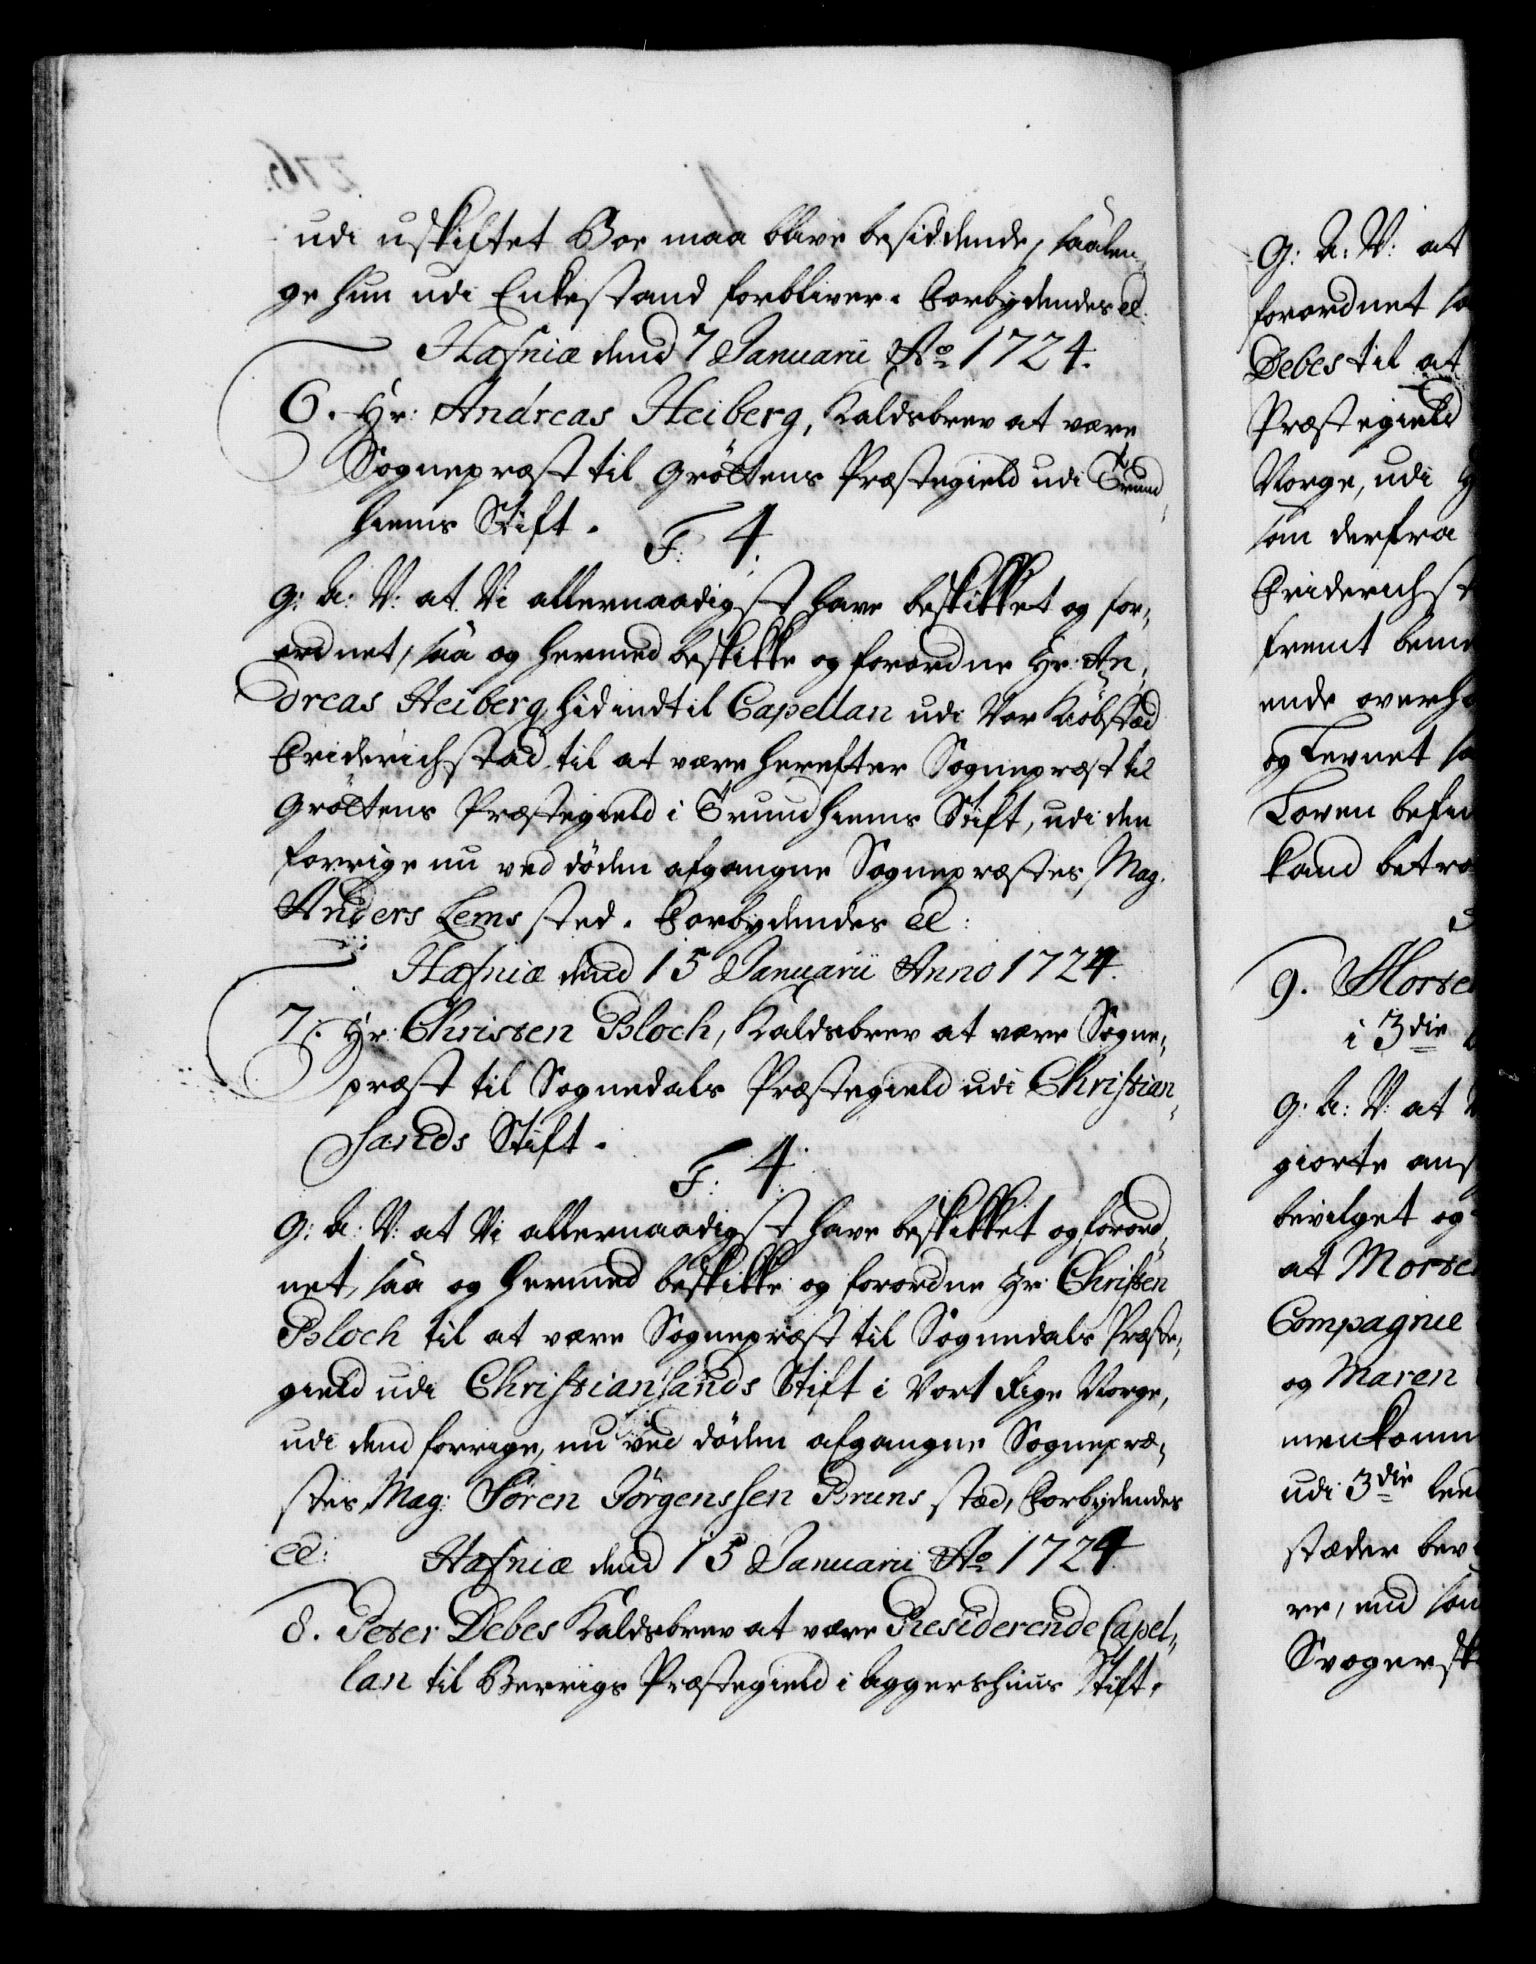 udi uskiftet Boe maa blive besiddende, saalen,
ge hun udi Enkestand forbliver. Forbydendes el:
Hafniæ dend 7 Januarii Ao 1724.
6. Hr: Andreas Heiberg, Kaldsbrev at være
Sognepræst til Gröttens Præstegield udi Trund,
hiems Stift.
F: 4.
G: A: V: at Vi allernaadigst have beskikket og for,
ordnet, saa og hermed beskikke og forordne Hr: An,
dreas Heiberg, hidindtil Capellan udi Vor Kiøbstæd
Friderichstad, til at være herefter Sognepræst til
Gröttens Præstegield i Trundhiems Stift, udi den
forrige nu ved döden afgangne Sognepræstes, Mag.
Anders Lems sted. Forbydendes el:
Hafniæ dend 15 Januarii Anno 1724.
7. Hr: Christen Bloch, Kaldsbrev at være Sogne,
præst til Sognedals Præstegield udi Christian,
sands Stift.
F: 4.
G: A: V: at Vi allernaadigst have beskikket og forord,
net, saa og hermed beskikke og forordne Hr: Christen
Bloch til at være Sognepræst til Sognedals Præste,
gield udi Christiansands Stift i Vort Rige Norge,
udi dend forrige, nu ved döden afgangne Sognepræ,
stes Mag: Sören Jörgenssen Bruns stæd, Forbydendes
el:
Hafniæ dend 15 Januarii Ao 1724
8. Peter Debes Kaldsbrev at være Residerende Capel,
lan til Berrigs Præstegield i Aggershuus Stift.
G: A: V: at
forordnet
Debes til at
Præstegield
Norge, udi
som derfra
Friderichst
fremt
ende
og Levnet
Loven
kand
9. Morten
i 3die
G: A: V: at
giorte
bevilget og
at Morten
Compagnie
og Maren
udi 3die
stæder